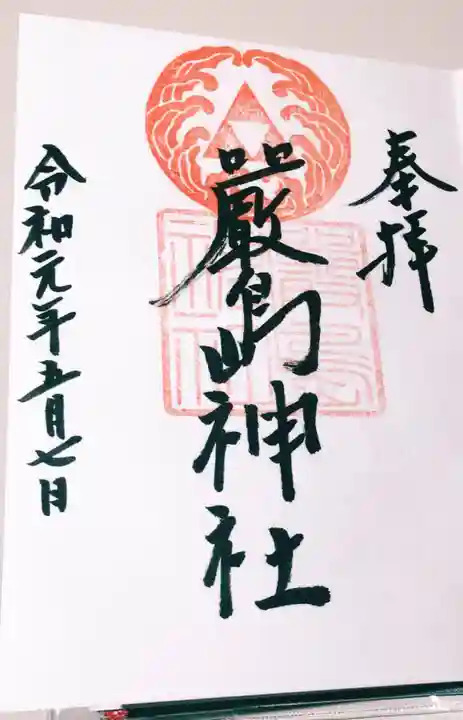 奉拝
嚴島神社
令和元年五月七日